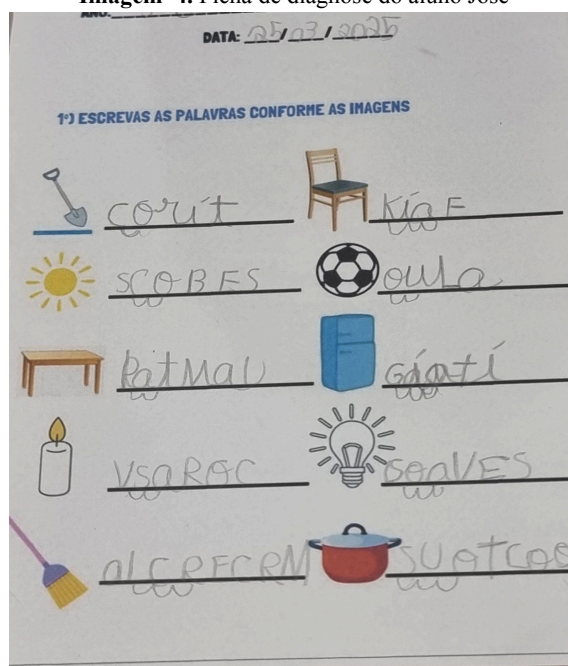 Imagem 4: Ficha de diagnose do aluno José
ANO:
DATA: 25/03/2025
1º) ESCREVAS AS PALAVRAS CONFORME AS IMAGENS
corit
KiaF
SCOBES
OULa
RatMaU
Gáatí
VSaRGC
SOaVES
alCRFCRM